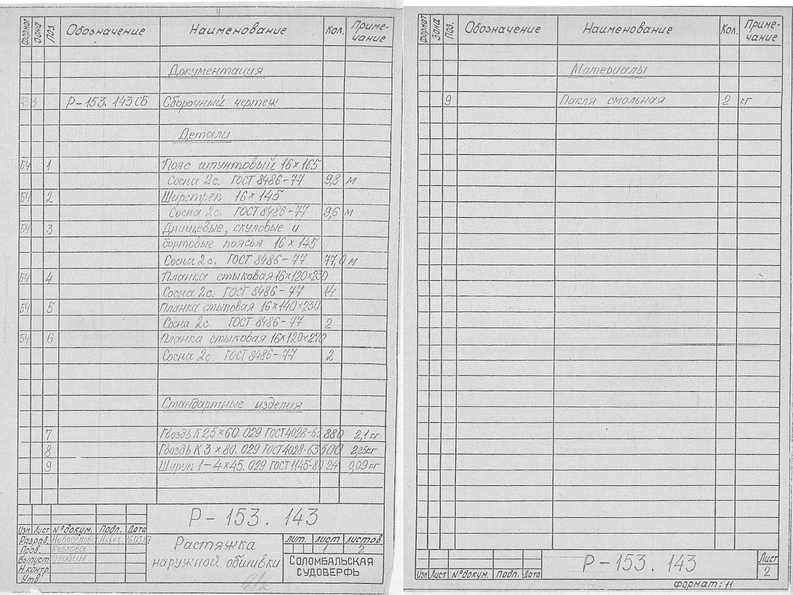 Формат Зона Поз. Обозначение Наименование Кол. Примечание
Документация
Р-153.143СБ Сборочный чертеж
Детали
БЧ 1 Пояс шпунтовый 16×165
Сосна 2с. ГОСТ 8486-77 9,8 м
БЧ 2 Ширстрек 16×145
Сосна 2с. ГОСТ 8486-77 9,6 м
БЧ 3 Днищевые, скуловые и
бортовые поясья 16×145
Сосна 2с. ГОСТ 8486-77 77,0 м
БЧ 4 Планка стыковая 16×120×230
Сосна 2с. ГОСТ 8486-77 14
БЧ 5 Планка стыковая 16×140×230
Сосна 2с. ГОСТ 8486-77 2
БЧ 6 Планка стыковая 16×120×270
Сосна 2с. ГОСТ 8486-77 2
Стандартные изделия
7 Гвоздь К 2,5×60.029 ГОСТ 4028-63 880 2,1 кг
8 Гвоздь К 3×80.029 ГОСТ 4028-63 500
9 Шуруп 1-4×45.029 ГОСТ 1145-80 24 0,09 кг
Р-153.143
Изм Лист № докум. Подп. Дата
Разраб.
Пров.
Выпуст
Н.контр.
Утв.
Растяжка
наружной обшивки
Лит. Лист Листов
1 2
СОЛОМБАЛЬСКАЯ
СУДОВЕРФЬ
Формат Зона Поз. Обозначение Наименование Кол. Примечание
Материалы
9 Пакля смольная 2 кг
Изм Лист № докум. Подп. Дата
Р-153.143
Лист
2
Формат: 11